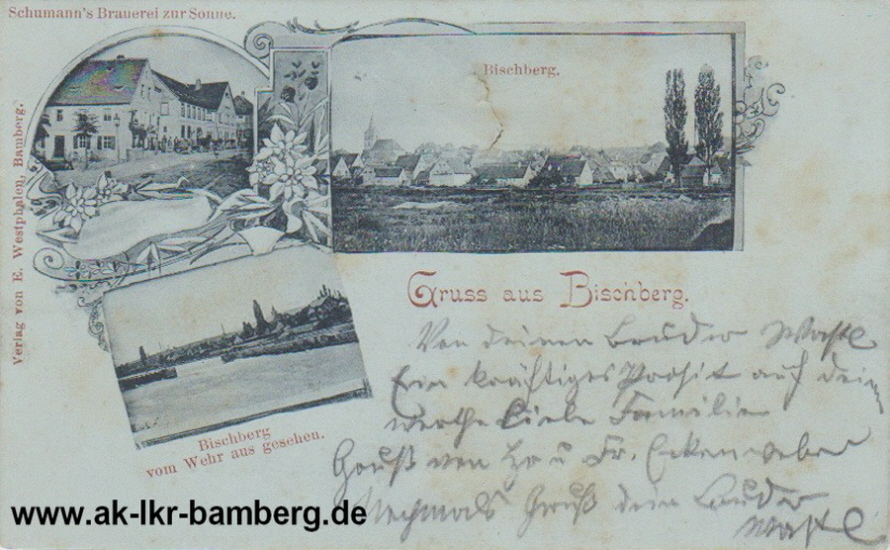 Schumann's Brauerei zur Sonne.
Bischberg.
Verlag von E. Westphalen, Bamberg.
Gruss aus Bischberg.
Von deinen Bruder Wastl
Ein kräftiges Prosit auf dein
werthe Liebe Familie
Gruß von H u Fr. Eckenweber
Nochmals Gruß dein Bruder
Wastl
Bischberg
vom Wehr aus gesehen.
www.ak-lkr-bamberg.de